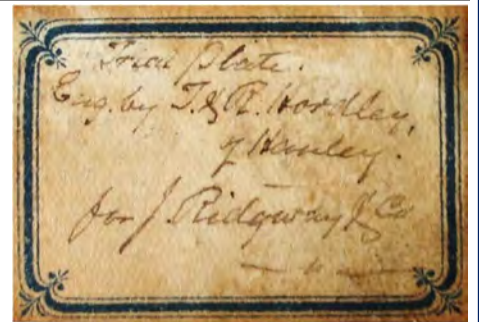 Trial Plate.
Eng. by T. & R. Hordley,
of Hanley.
for J Ridgway & Co